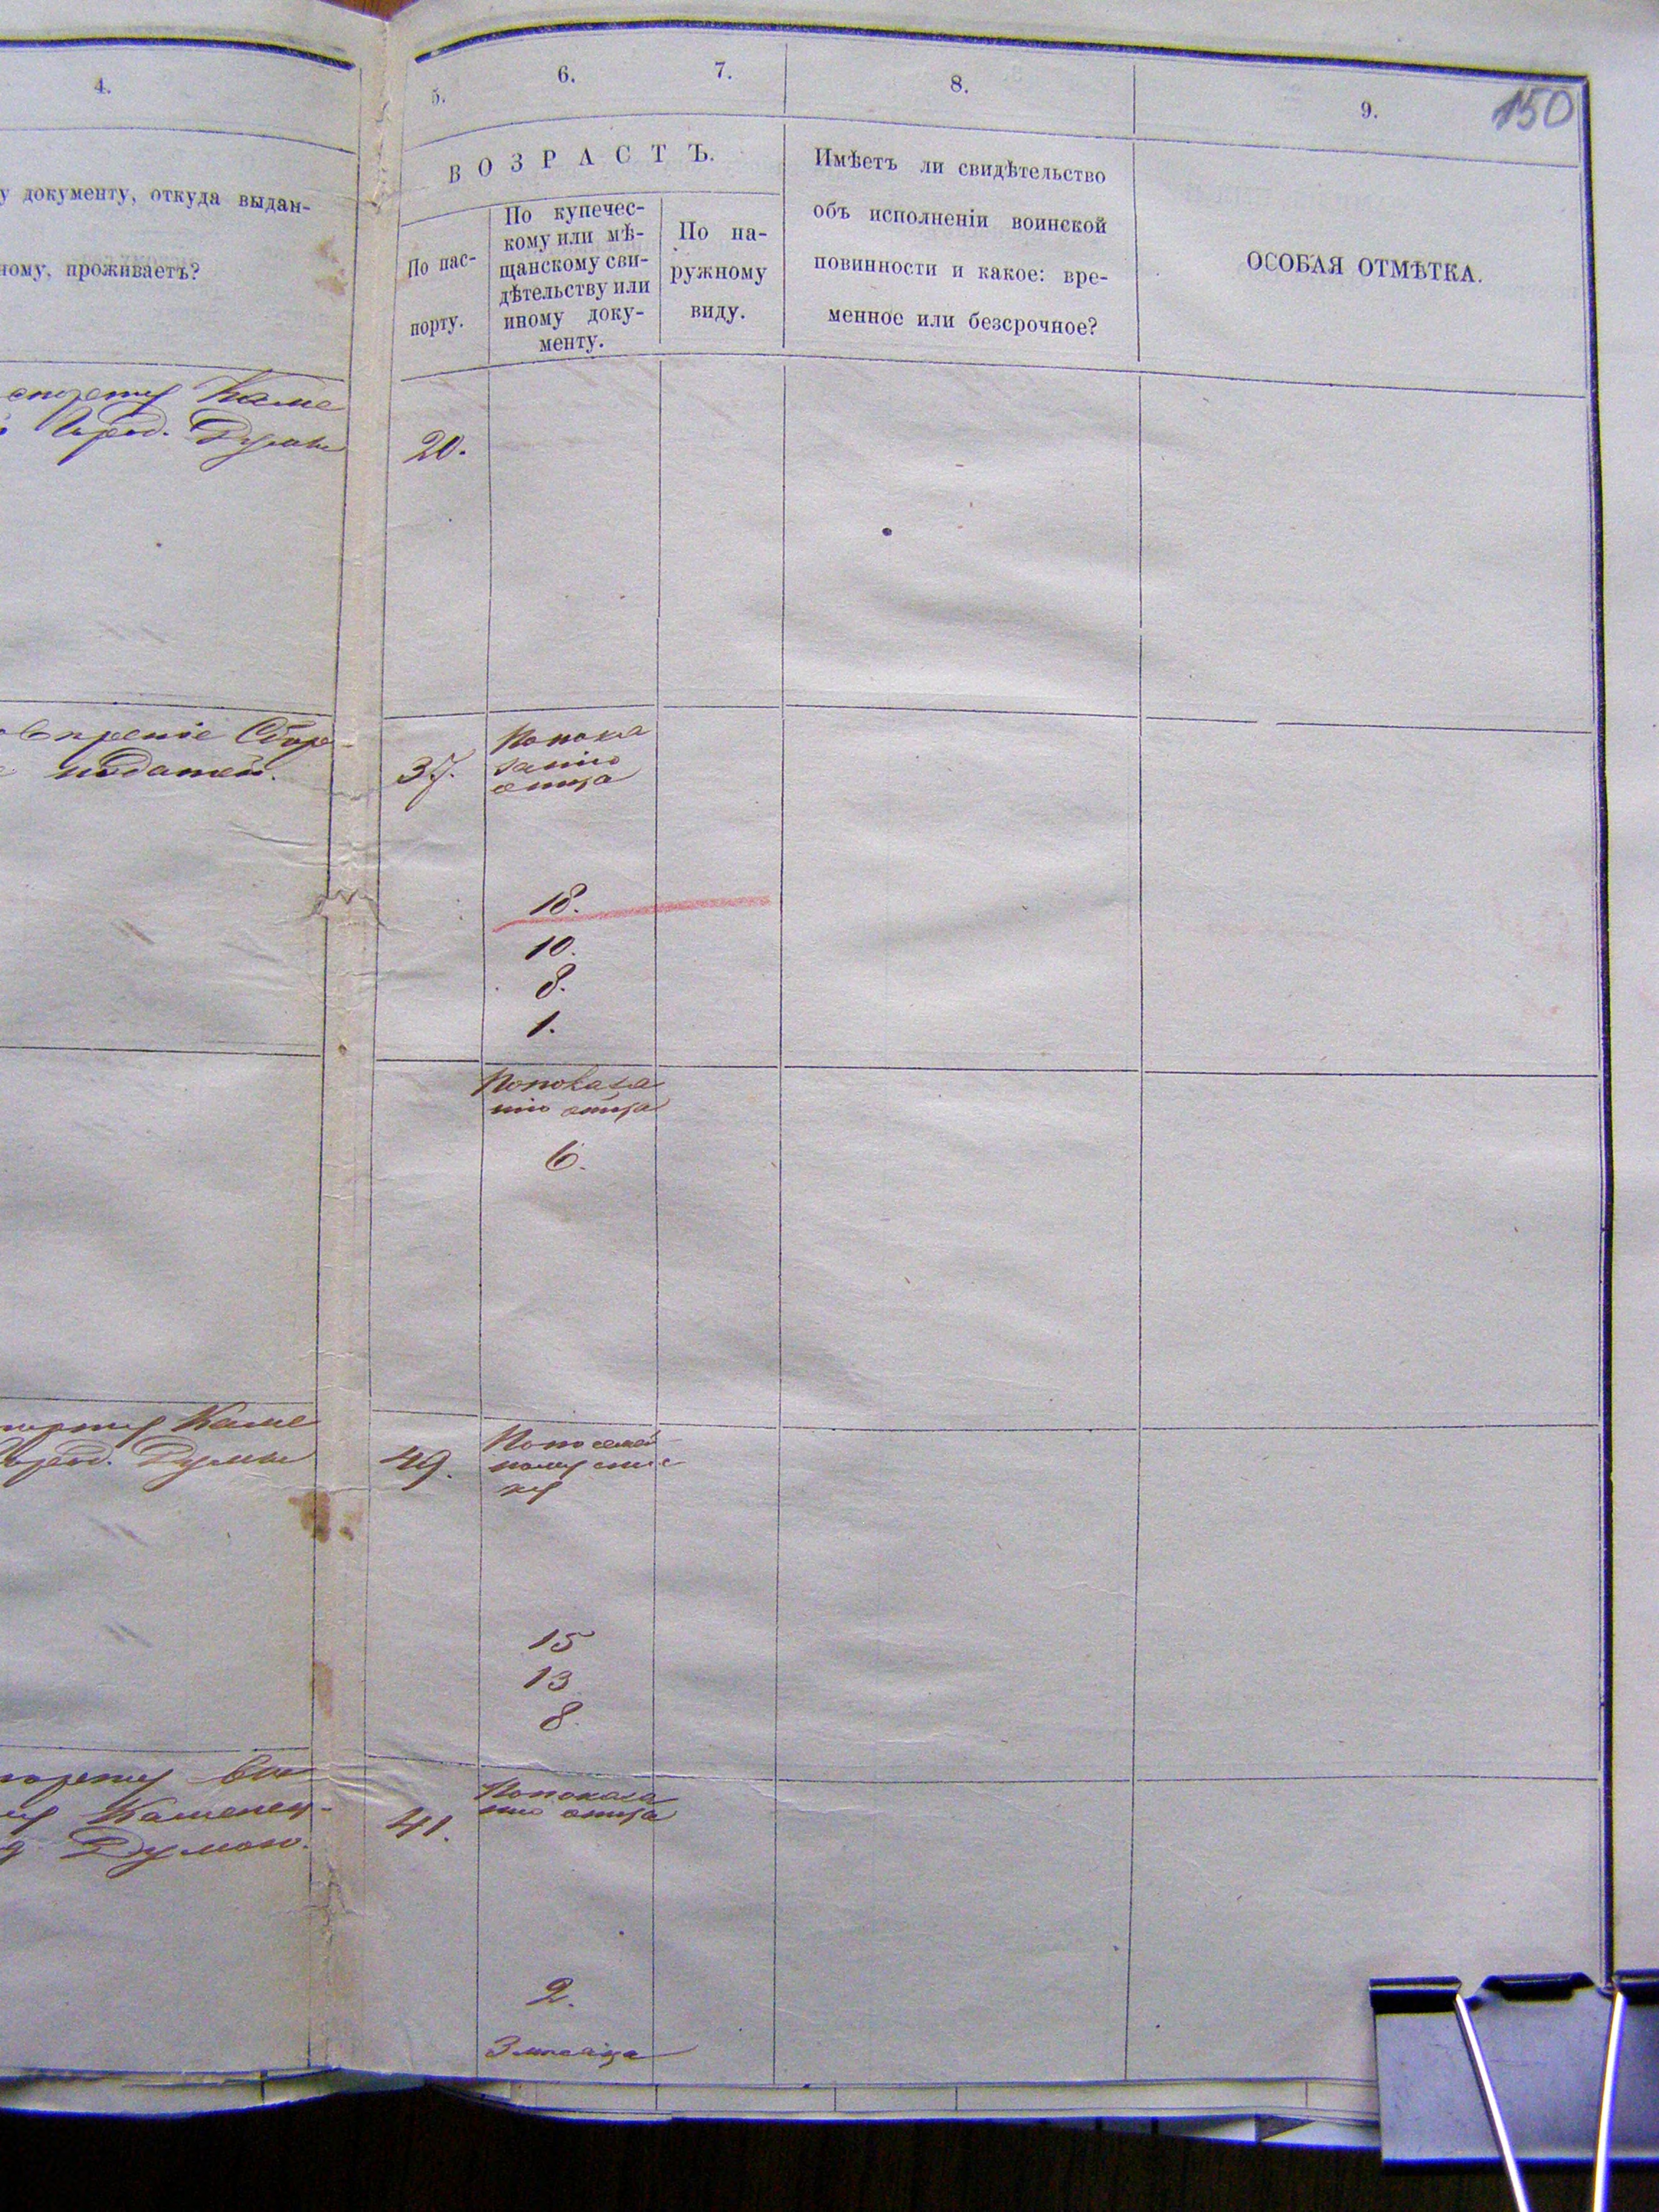 4.
у документу, откуда выдан-
ному, проживаетъ?
Каме
Город. Думы
податей.
Каме
Город. Думы
Каменец-
Думою.
5.
6.
7.
8.
9.
150
ВОЗРАСТЪ.
По пас-
порту.
По купечес-
кому или мѣ-
щанскому сви-
дѣтельству или
иному доку-
менту.
По на-
ружному
виду.
Имѣетъ ли свидѣтельство
объ исполненіи воинской
повинности и какое: вре-
менное или безсрочное?
ОСОБАЯ ОТМѢТКА.
20.
37.
По пока
занію
отца
18.
10.
8.
1.
По показа
нію отца
6.
49.
По посемей
ному спис
ку
15
13
8.
41.
По показа
нію отца
2.
3 месяца